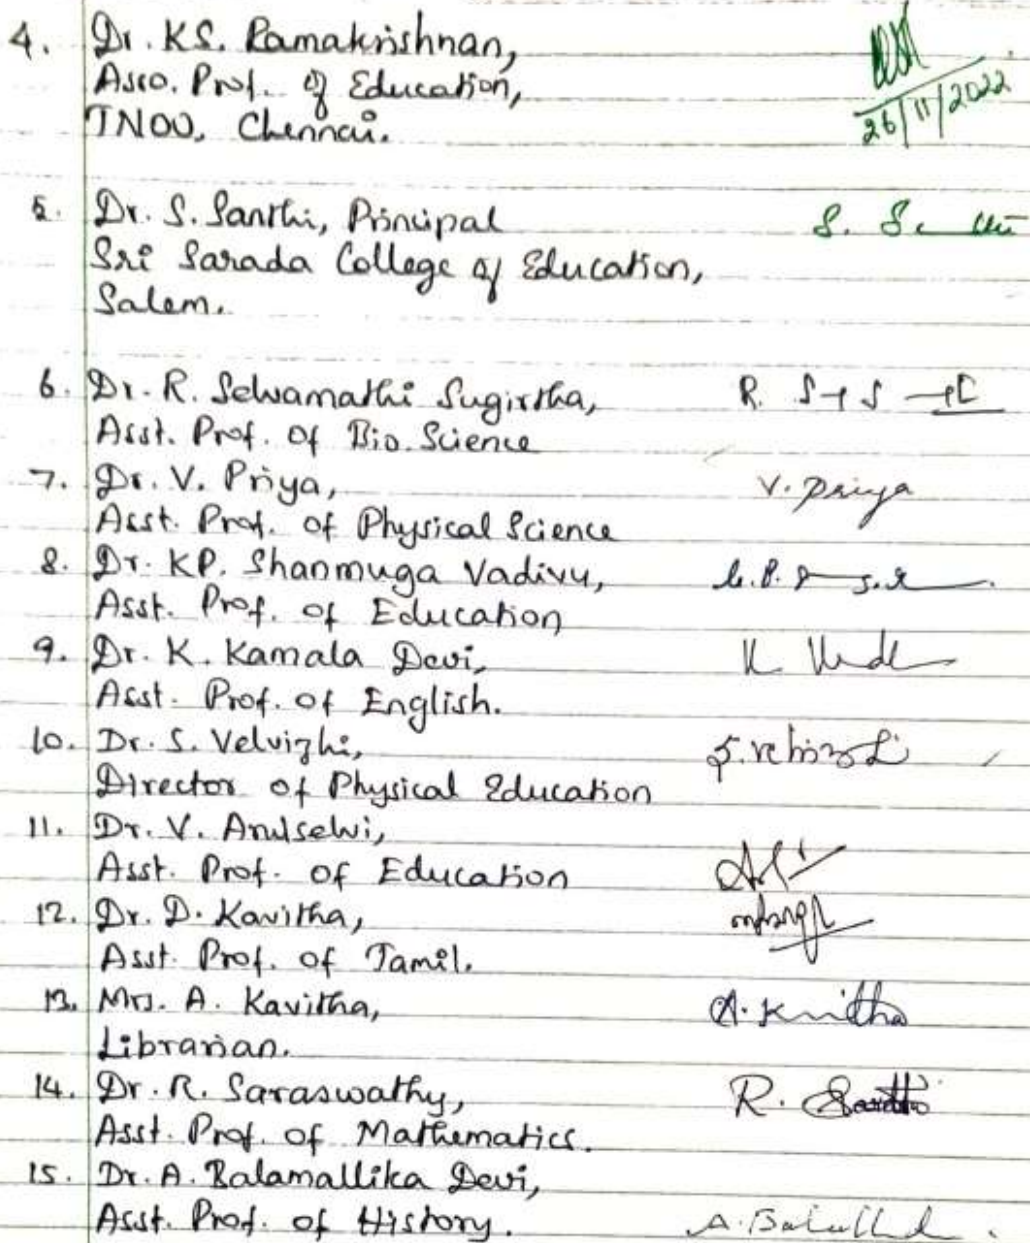 4. Dr. KS. Ramakrishnan,
Asso. Prof. of Education,
TNOU, Chennai.
26/11/2022
5. Dr. S. Santhi, Principal
Sri Sarada College of Education,
Salem.
6. Dr. R. Selvamathi Sugirtha,
Asst. Prof. Of Bio. Science
7. Dr. V. Priya, V. Priya
Asst. Prof. of Physical Science
8. Dr. KP. Shanmuga Vadivu,
Asst. Prof. of Education
9. Dr. K. Kamala Devi,
Asst. Prof. of English.
10. Dr. S. Velvizhi,
Director of Physical Education
11. Dr. V. Arulselvi,
Asst. Prof. of Education
12. Dr. D. Kavitha,
Asst. Prof. of Tamil.
13. Mrs. A. Kavitha,
Librarian.
14. Dr. R. Saraswathy, R.
Asst. Prof. of Mathematics.
15. Dr. A. Balamallika Devi,
Asst. Prof. of History.